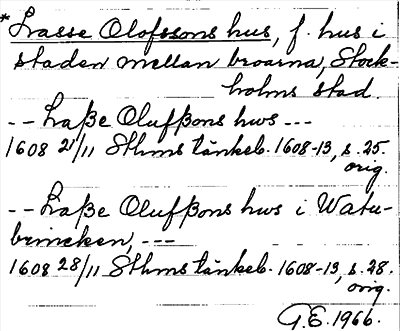 *Lasse Olofssons hus, f. hus i
staden mellan broarna, Stock-
holms stad.
-- Laße Olufßons hws ---
1608 21/11 Sthms tänkeb. 1608-13, s. 25
orig.
-- Laße Olufßons hws i Watu-
brincken, ---
1608 28/11 Sthms tänkeb. 1608-13, s. 28.
orig.
G.E. 1966.